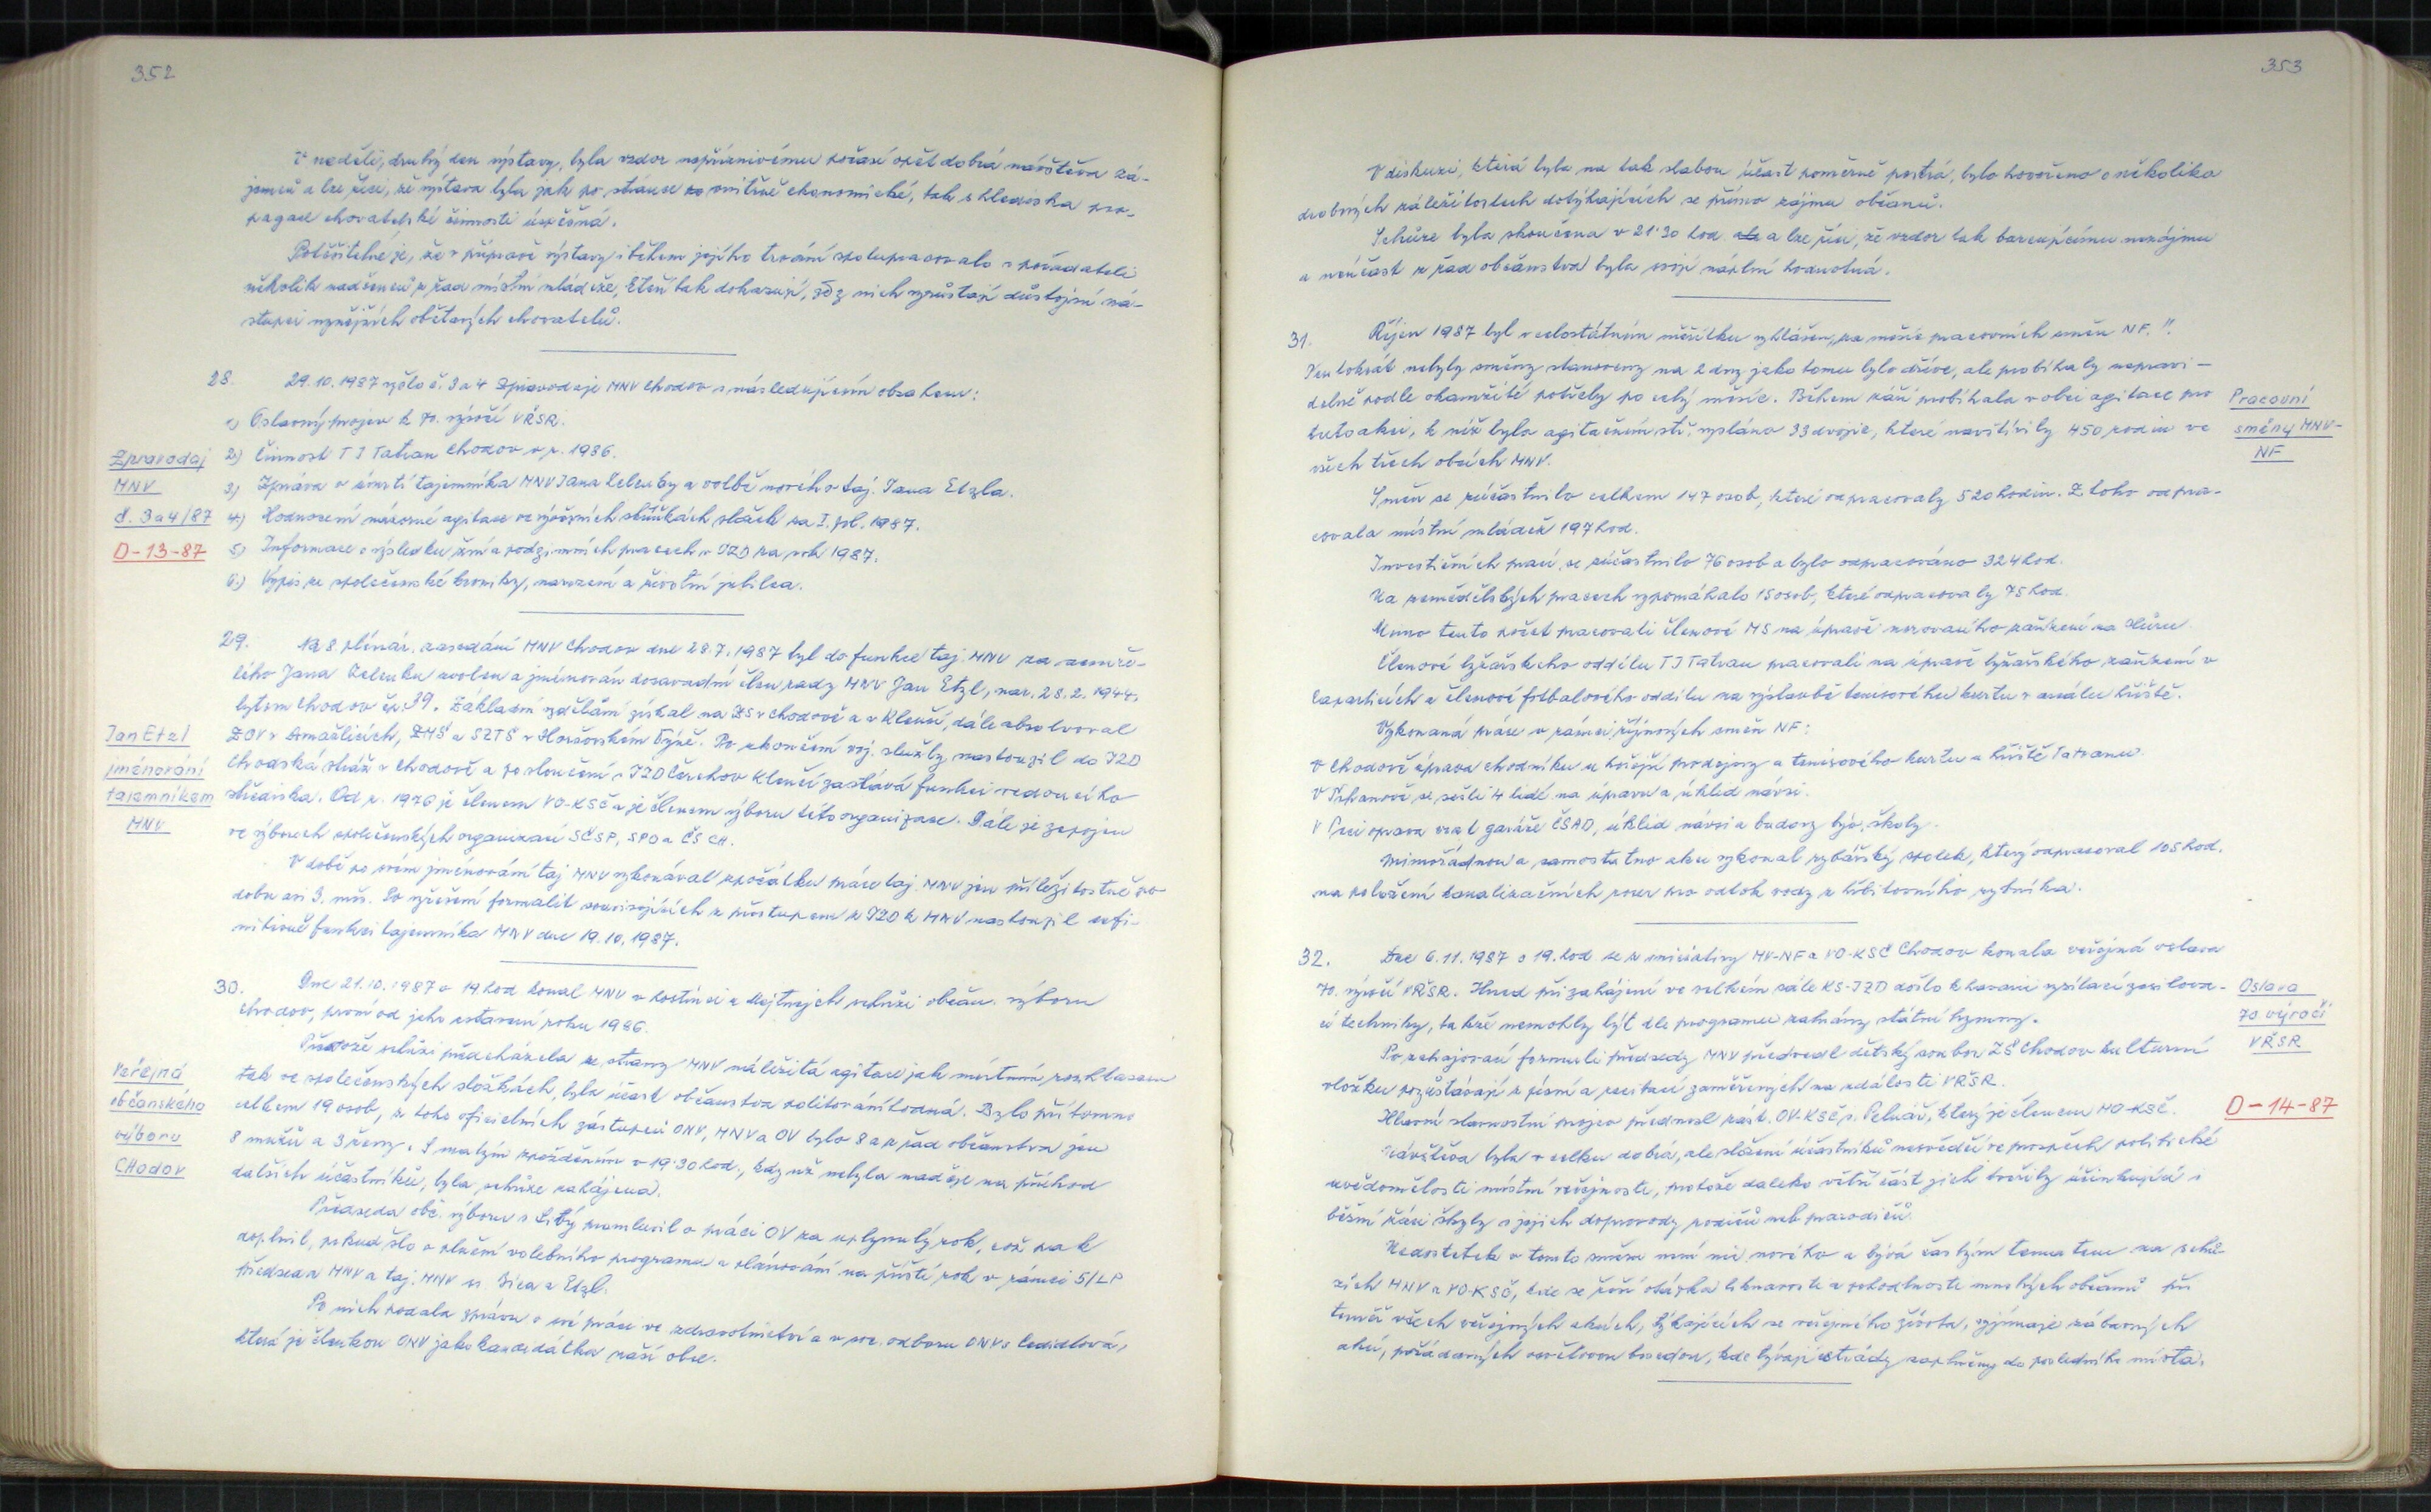 352
V neděli, druhý den výstavy, byla vzdor nepříznivému počasí opět dobrá návštěva zá-
jemců a lze říci, že výstava byla jak po stránce vnitřně ekonomické, tak s hlediska pro-
pagace chovatelské činnosti úspěšná.
Potěšitelné je, že v přípravě výstavy i během jejího trvání spolupracovalo s pořadateli
několik nadšenců z řad místní mládeže, kteří tak dokazují, že z nich vyrůstají důstojní ná-
stupci nynějších obětavých chovatelů.
28. 29.10.1987 vyšlo č. 3 a 4 Zpravodaje MNV Chodov s následujícím obsahem:
1) Oslavný projev k 70. výročí VŘSR.
Zpravodaj
MNV
č. 3a4/87
D-13-87
2.) Činnost TJ Tatran Chodov v r. 1986.
3) Zpráva o úmrtí tajemníka MNV Jana Zelenky a volbě nového taj. Jana Etzla.
4) Hodnocení názorné agitace ve výročních skříňkách složek za I. pol. 1987.
5) Informace o výsledku žní a podzimních pracech v JZD za rok 1987.
6.) Výpis ze společenské kroniky, narození a životní jubilea.
29. Na 8 plenár. zasedání MNV Chodov dne 28.7.1987 byl do funkce taj. MNV za zemře-
lého Jana Zelenku zvolen a jmenován dosavadní člen rady MNV Jan Etzl, nar. 28.2.1944,
bytem Chodov čp. 39. Základní vzdělání získal na ZŠ v Chodově a v Klenčí, dále absolvoval
Jan Etzl
jmenování
tajemníkem
MNV
ZOV v Domažlicích, ZMŠ a SZTŠ v Horšovském Týně. Po ukončení voj. služby nastoupil do JZD
Chodská stráž v Chodově a po sloučení s JZD Čerchov Klenčí zastává funkci vedoucího
střediska. Od r. 1976 je členem VO-KSČ a je členem výboru této organizace. Dále je zapojen
ve výborech společenských organizací SČSP, SPO a ČSCH.
V době po svém jmenování taj. MNV vykonával zpočátku práce taj. MNV jen příležitostně po
dobu asi 3. měs. Po vyřešení formalit souvisejících s přestupem z JZD k MNV nastoupil defi-
nitivně funkci tajemníka MNV dne 19.10.1987.
30. Dne 21.10.1987 o 19 hod konal MNV v hostinci u Hojtných schůzi občan. výboru
Chodov, první od jeho ustavení roku 1986.
Veřejná
občanského
výboru
CHodov
Přestože schůzi předcházela ze strany MNV náležitá agitace jak místním rozhlasem
tak ve společenských složkách, byla účast občanstva politováníhodná. Bylo přítomno
celkem 19 osob, z toho oficielních zástupců ONV, MNV a OV bylo 8 a z řad občanstva jen
8 mužů a 3 ženy. S malým zpožděním v 19·30 hod., kdy už nebyla naděje na příchod
dalších účastníků, byla schůze zahájena.
Předseda obč. výboru s. Libý promluvil o práci OV za uplynulý rok, což pak
doplnil, pokud šlo o plnění volebního programu a plánování na příští rok v rámci 5/LP
předseda MNV a taj. MNV ss. Bica a Etzl.
Po nich podala zprávu o své práci ve zdravotnictví a v soc. odboru ONV s.
která je členkou ONV jako kandidátka naší obce.
353
V diskuzi, která byla na tak slabou účast poměrně pestrá, bylo hovořeno o několika
drobných záležitostech dotýkajících se přímo zájmu občanů.
Schůze byla skončena v 21·30 hod. a lze říci, že vzdor tak
a neúčast z řad občanstva byla svojí náplní hodnotná.
31. Říjen 1987 byl v celostátním měřítku vyhlášen „za měsíc pracovních směn NF."
Tentokrát nebyly směny stanoveny na 2 dny jako tomu bylo dříve, ale probíhaly nepravi-
delně podle okamžité potřeby po celý měsíc. Během září probíhala v obci agitace pro
Pracovní
směny MNV-
NF
tuto akci, k níž bylo agitačním stř. vysláno 33 dvojic, které navštívily 450 rodin ve
všech třech obcích MNV.
Směn se zúčastnilo celkem 147 osob, které odpracovaly 520 hodin. Z toho odpra-
covala místní mládež 197 hod.
Investičních prací se zúčastnilo 76 osob a bylo odpracováno 324 hod.
Na zemědělských pracech vypomáhalo 15 osob, které odpracovaly 75 hod.
Mimo tento počet pracovali členové MS na úpravě zařízení na Hůru.
Členové lyžařského oddílu TJ Tatran pracovali na úpravě lyžařského zařízení v
Caparticích a členové fotbalového oddílu na výstavbě tenisového kurtu v areálu hřiště.
Vykonaná práce v rámci říjnových směn NF:
V Chodově úprava chodníku u hořejší prodejny a tenisového kurtu a hřiště Tatranu.
V Trhanově se sešli 4 lidé na úpravu a úklid návsi.
V Peci oprava vrat garáže ČSAD, úklid návsi a budovy býv. školy.
Mimořádnou a samostatno akci vykonal rybářský spolek, který odpracoval 105 hod.
na položení kanalizačních rour pro odtok vody z hřbitovního rybníka.
32. Dne 6.11.1987 o 19. hod se z iniciativy MV-NF a VO-KSČ Chodov konala veřejná oslava
70. výročí VŘSR. Hned při zahájení ve velkém sále KS-JZD došlo k havarii vysílací zesilova-
Oslava
70 výročí
VŘSR
cí techniky, takže nemohly být dle programu zahrány státní hymny.
Po zahajovací formuli předsedy MNV předvedl dětský soubor ZŠ Chodov kulturní
vložku pozůstávající z písní a recitací zaměřených na události VŘSR.
Hlavní slavnostní projev přednesl zást. OV-KSČ s. Pelnář, který je členem MO-KSČ.
D-14-87
Návštěva byla v celku dobrá, ale složení účastníků nesvědčí ve prospěch politické
uvědomělosti místní veřejnosti, protože daleko větší část jich tvořily účinkující i
běžní žáci školy s jejich doprovody rodičů neb prarodičů.
Nedostatek v tomto směru není nic nového a bývá častým tematem na schů-
zích MNV a VO-KSČ, kde se řeší otázka liknavosti a pohodlnosti mnohých občanů při
téměř všech veřejných akcích, týkajících se veřejného života, vyjímaje zábavných
akcí, pořádaných osvětovou besedou, kde bývají estrády zaplněny do posledního místa.